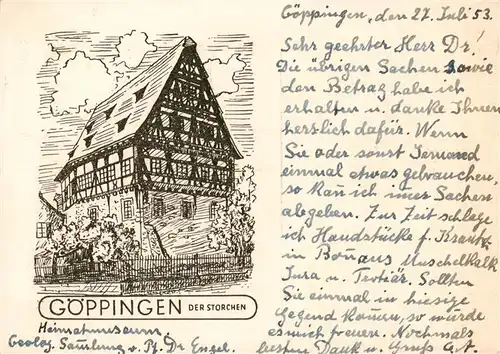 Göppingen, den 27. Juli 53.
Sehr geehrter Herr Dr!
Die übrigen Sachen sowie
den Betrag habe ich
erhalten u. danke Ihnen
herzlich dafür. Wenn
Sie oder sonst Jemand
einmal etwas gebrauchen,
so kan̄ ich im̄er Sachen
abgeben. Zur Zeit schlage
ich Handstücke f. Krantz
in Bon̄ aus Muschelkalk
Jura u. Tertiär. Sollten
Sie einmal in hiesige
Gegend kom̄en, so würde
es mich freuen. Nochmals
besten Dank u. Gruß
GÖPPINGEN DER STORCHEN
Heimatmuseum,
Geolog. Samlung v. Pf. Dr Engel.